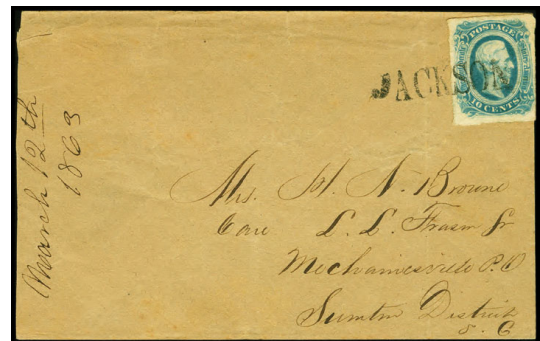 POSTAGE
10 CENTS
JACKSON
March 12th
1863
Mrs. H. N. Browne
Care L. L. Fraser Jr
Mechanicsville P. O
Sumter District
S. C